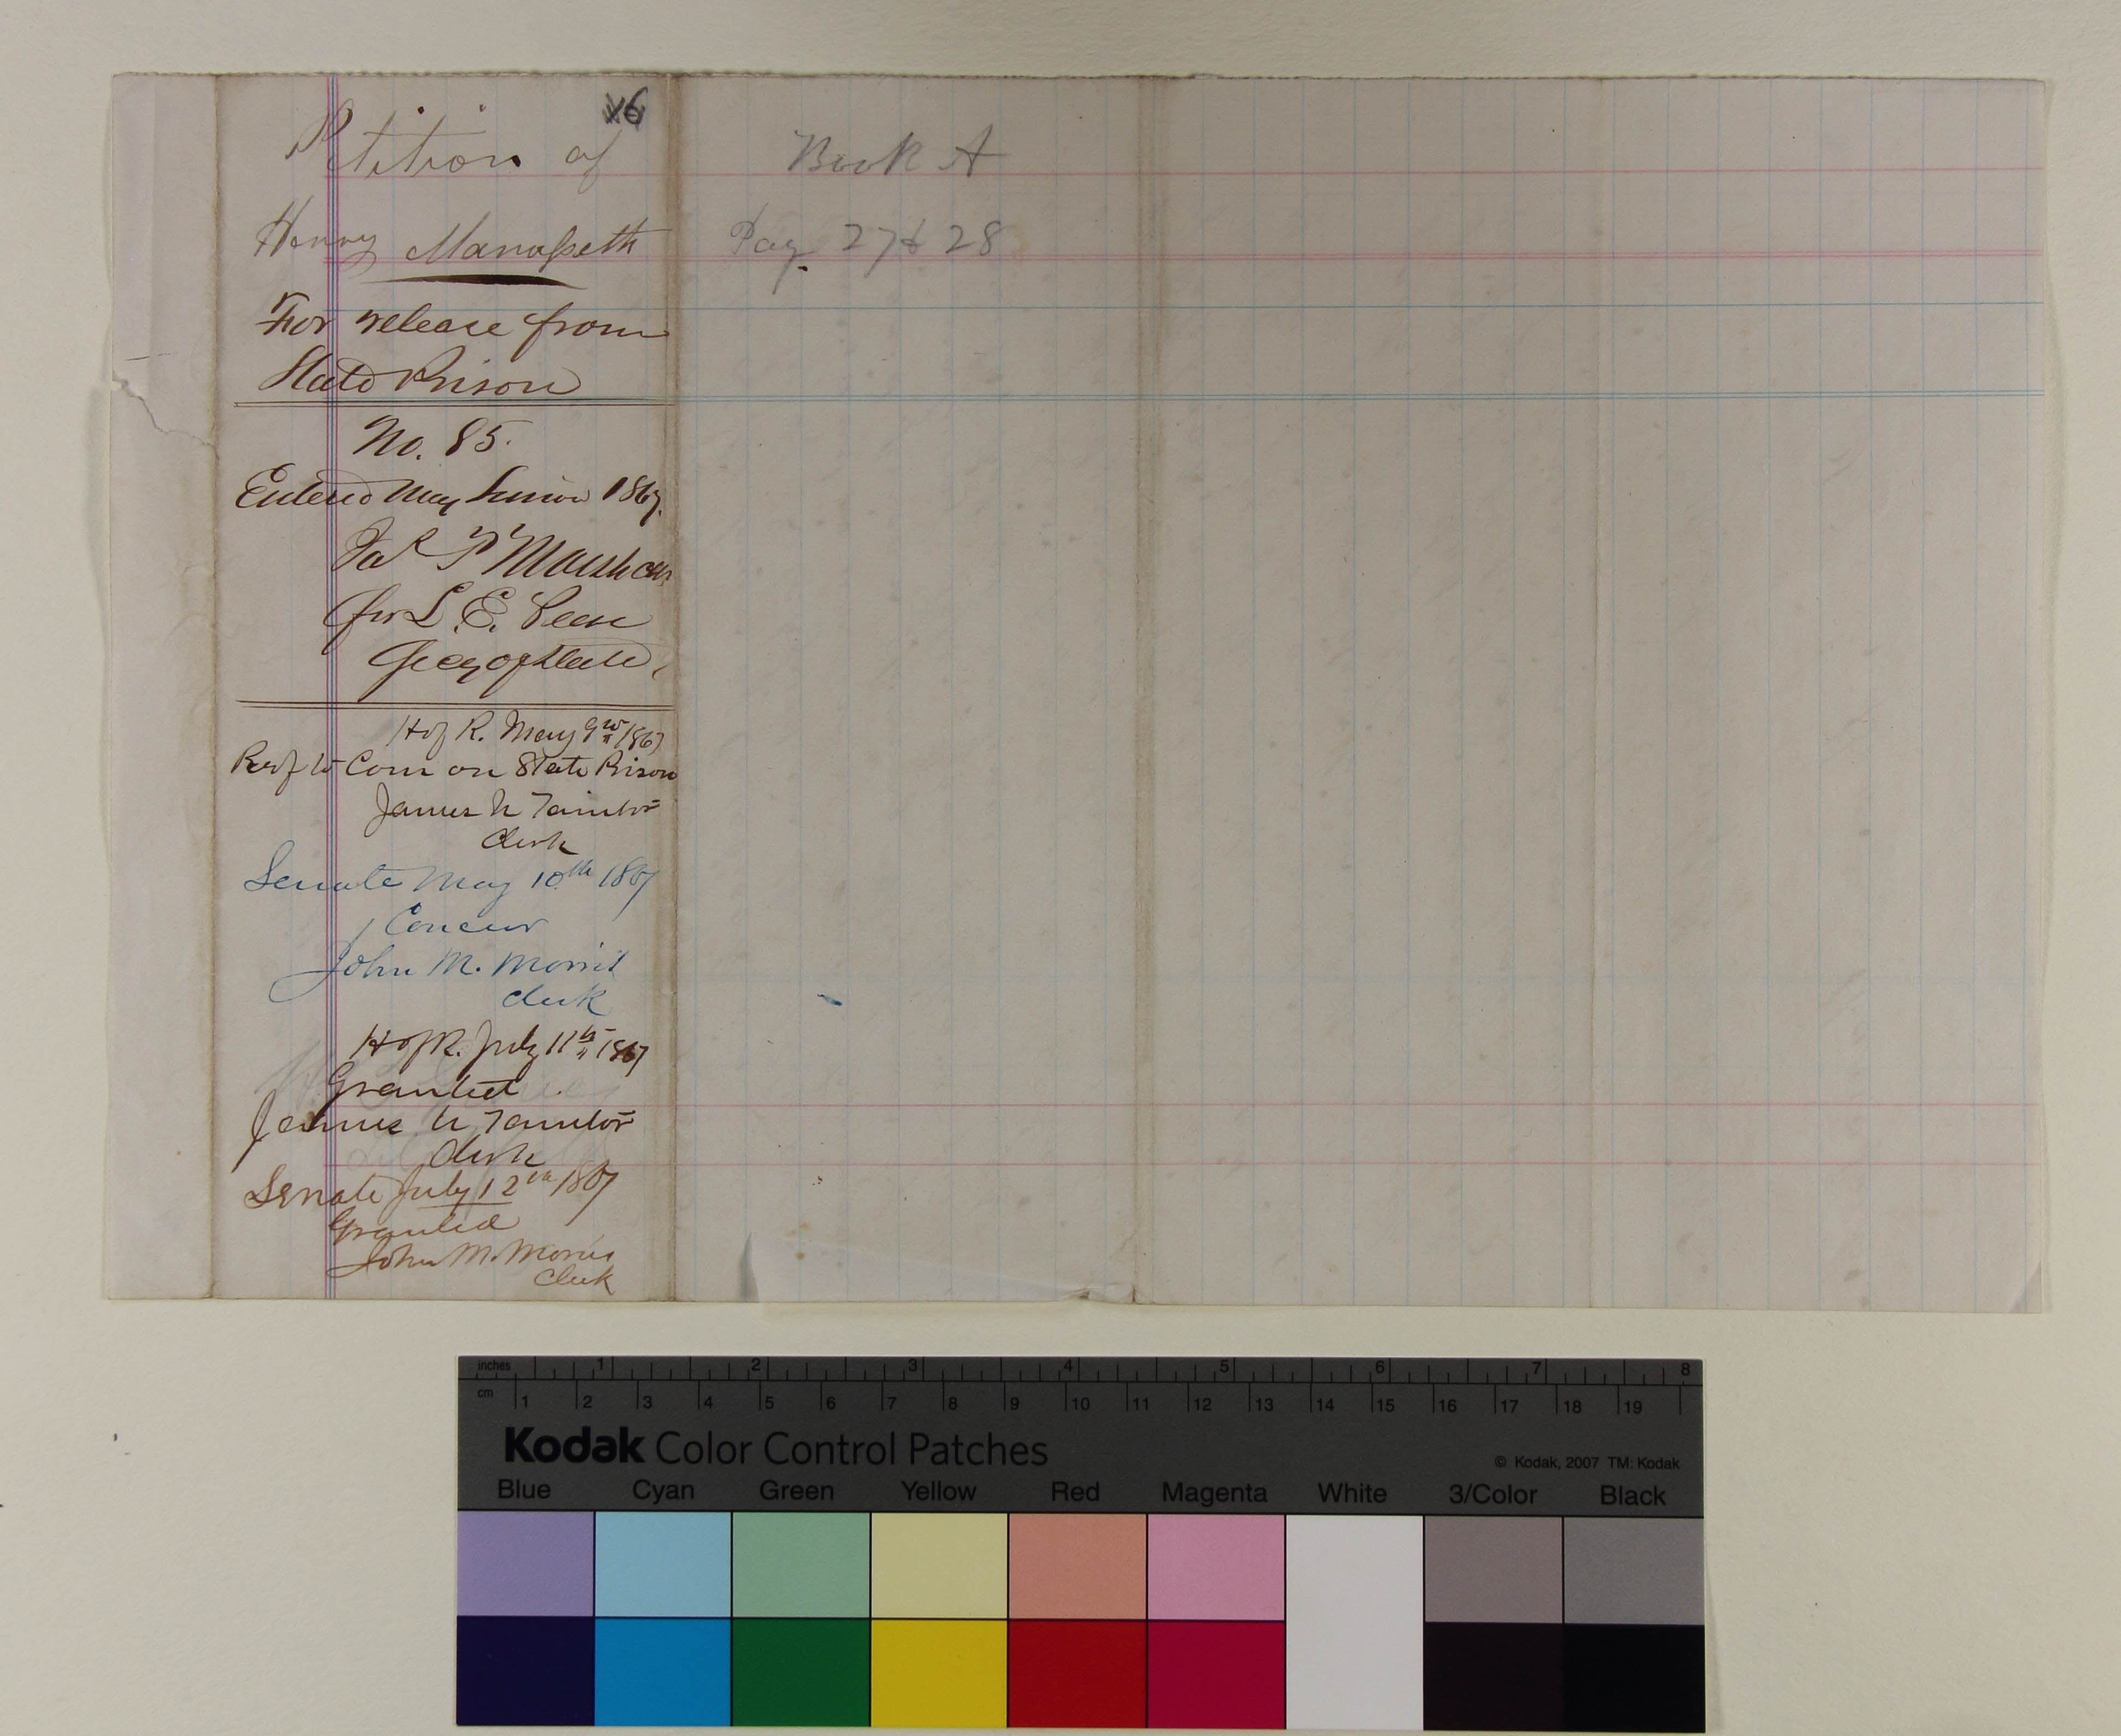 6
Petition of
Henry Manasseth
For release from
State Prison
No. 85.
Entered May Session 1867.
for L. E. Pease
Secy of State,
H of R. May 9th 1867
Ref to Com on State Prison
James N Taintor
Clerk
Senate May 10th 1867
Concur
John M. Morris
Clerk
H of R. July 11th 1867
Granted
James N Taintor
Clerk
Senate July 12th 1867
Granted
John M. Morris
Clerk
Book A
Pag. 27 & 28
inches 1 2 3 4 5 6 7 8
cm 1 2 3 4 5 6 7 8 9 10 11 12 13 14 15 16 17 18 19
Kodak Color Control Patches
© Kodak, 2007 TM: Kodak
Blue Cyan Green Yellow Red Magenta White 3/Color Black